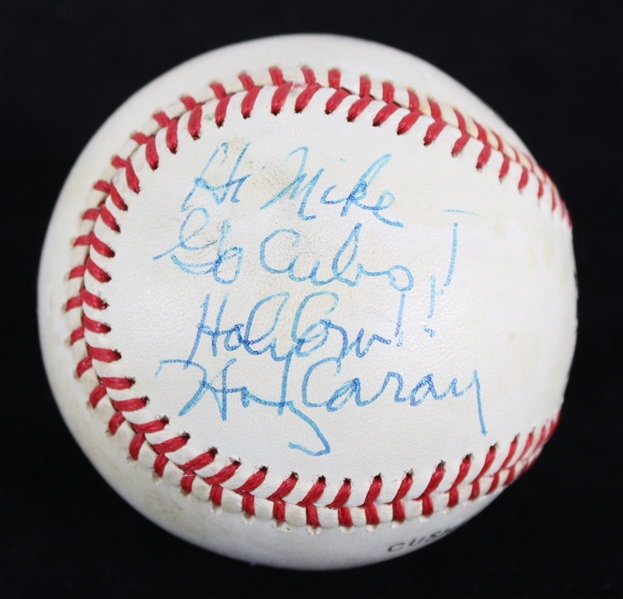 Hi Mike –
Go Cubs!
Holy Cow!!
Harry Caray
CUSH